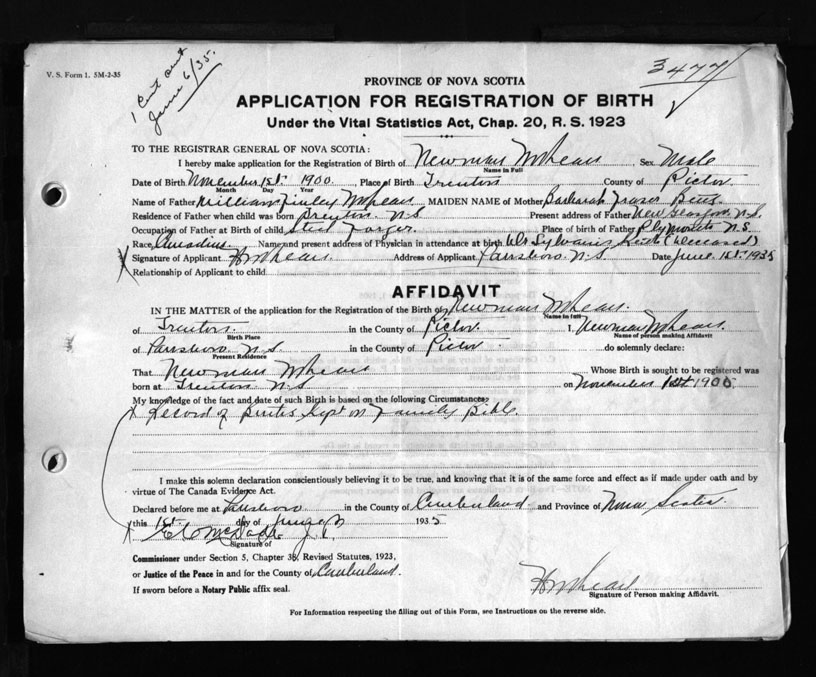 1 Cert sent
June 6/35.
V. S. Form 1. 5M-2-35
3477
PROVINCE OF NOVA SCOTIA
APPLICATION FOR REGISTRATION OF BIRTH
Under the Vital Statistics Act, Chap. 20, R. S. 1923
TO THE REGISTRAR GENERAL OF NOVA SCOTIA:
I hereby make application for the Registration of Birth of Newman Sex Male
Name in Full
Date of Birth November 1st 1900. Place of Birth Trenton County of Pictou
Month Day Year
Name of Father William Finley MAIDEN NAME of Mother Barbarah Fraser
Residence of Father when child was born Trenton. N S Present address of Father New Glasgow, N.S.
Occupation of Father at Birth of child Steel Forger. Place of birth of Father N. S.
Race Name and present address of Physician in attendance at birth (Deceased)
Signature of Applicant Address of Applicant Parrsboro. N. S Date June 1st 1935
Relationship of Applicant to child
AFFIDAVIT
IN THE MATTER of the application for the Registration of the Birth of Newman
Name in full
of Trenton. in the County of Pictou. I, Newman
Birth Place Name of person making Affidavit
of Parrsboro N. S. in the County of Pictou do solemnly declare:
Present Residence
That Newman Whose Birth is sought to be registered was
born at Trenton N. S on November 1st 1900.
My knowledge of the fact and date of such Birth is based on the following Circumstances:
Record of Births Kept in Family Bible.
I make this solemn declaration conscientiously believing it to be true, and knowing that it is of the same force and effect as if made under oath and by
virtue of The Canada Evidence Act.
Declared before me at Parrsboro in the County of Cumberland and Province of Nova Scotia
this 1st day of June 1935
J. P.
Signature of
Commissioner under Section 5, Chapter 38, Revised Statutes, 1923,
or Justice of the Peace in and for the County of Cumberland.
If sworn before a Notary Public affix seal.
Signature of Person making Affidavit.
For Information respecting the filling out of this Form, see Instructions on the reverse side.